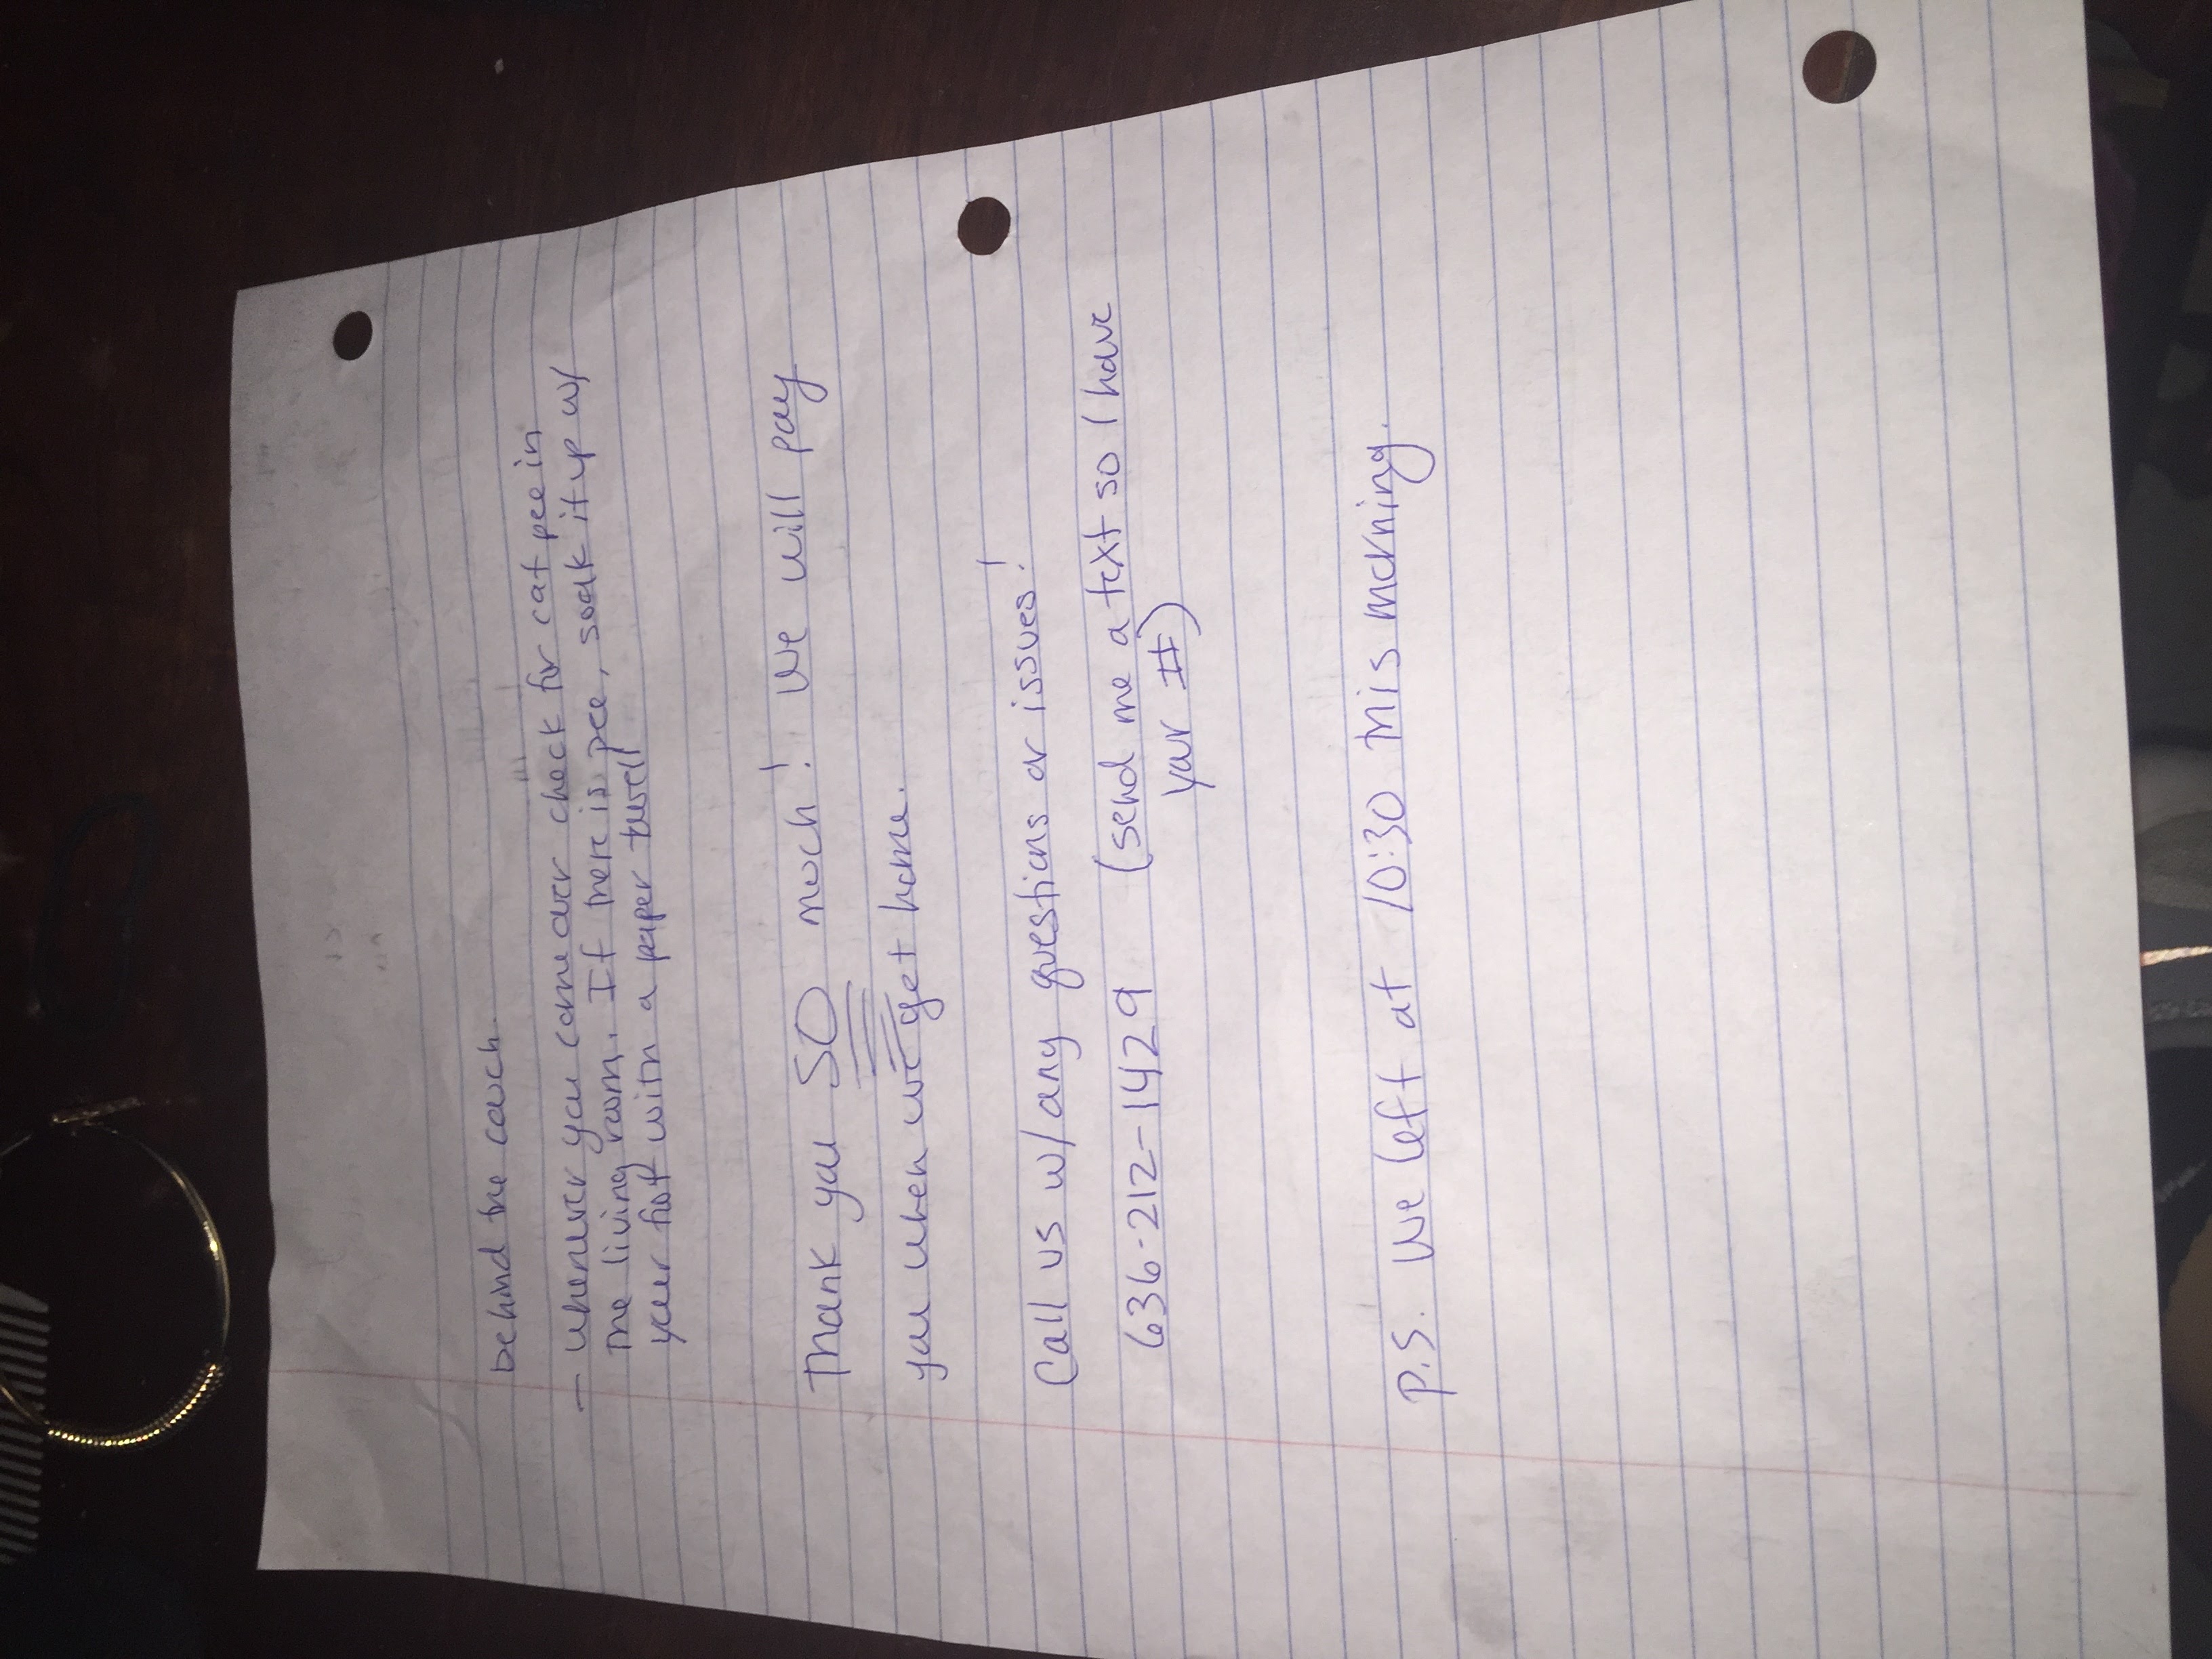 behind the couch.
- whenever you come over check for cat pee in
the living room. If there is pee, soak it up w/
your foot with a paper towell
Thank you SO much! We will pay
you when we get home.
Call us w/ any questions or issues!
636-212-1429 (send me a text so I have
your #)
P.S. We left at 10:30 this morning.